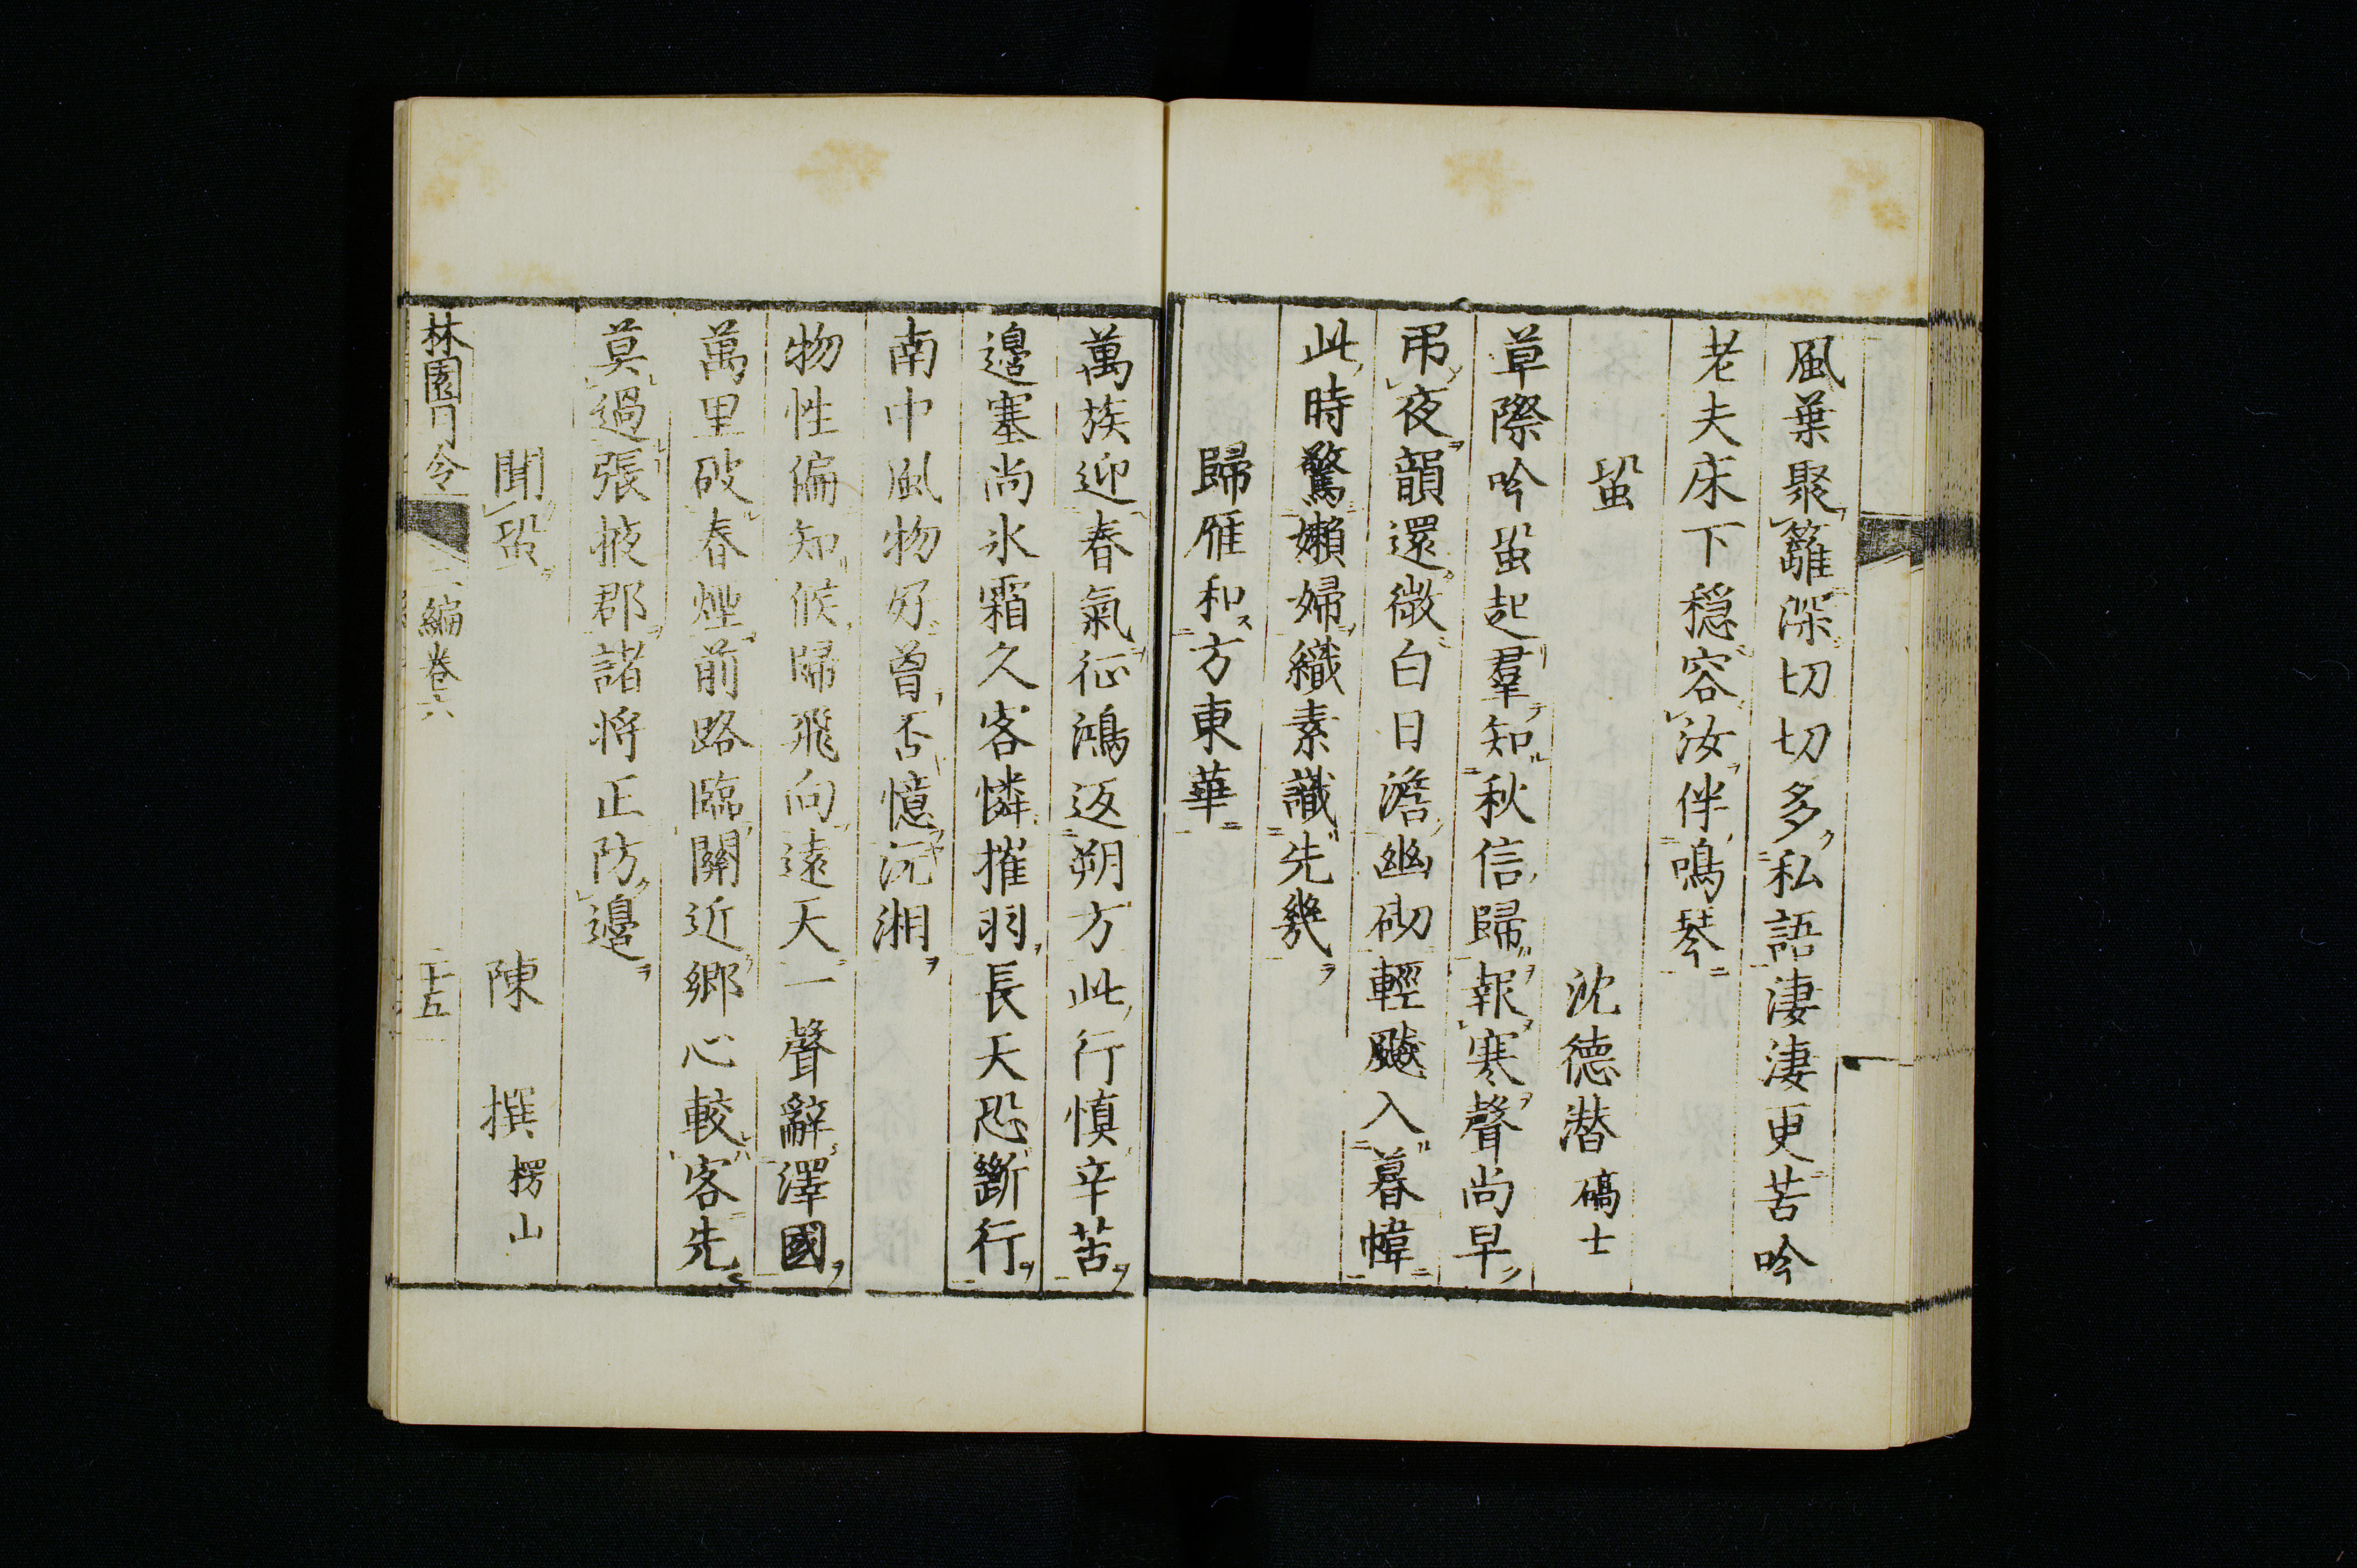 風葉聚籬深切切多私語淒淒更苦吟
老夫床下穏容汝伴鳴琴
蛩
沈德潜 碻士
草際吟蛩起羣知秋信歸報寒聲尚早
弔夜韻還微白日澹幽砌輕颸入暮幃
此時驚嬾婦織素識先幾
歸雁和方東華
萬族迎春氣征鴻返朔方此行慎辛苦
邉塞尚氷霜久客憐摧羽長天恐斷行
南中風物好曾否憶沅湘
物性偏知候歸飛向遠天一聲辭澤國
萬里破春煙前路臨關近鄉心較客先
莫過張掖郡諸将正防邉
聞蛩
陳撰 楞山
林園月令 二編卷六 二十五